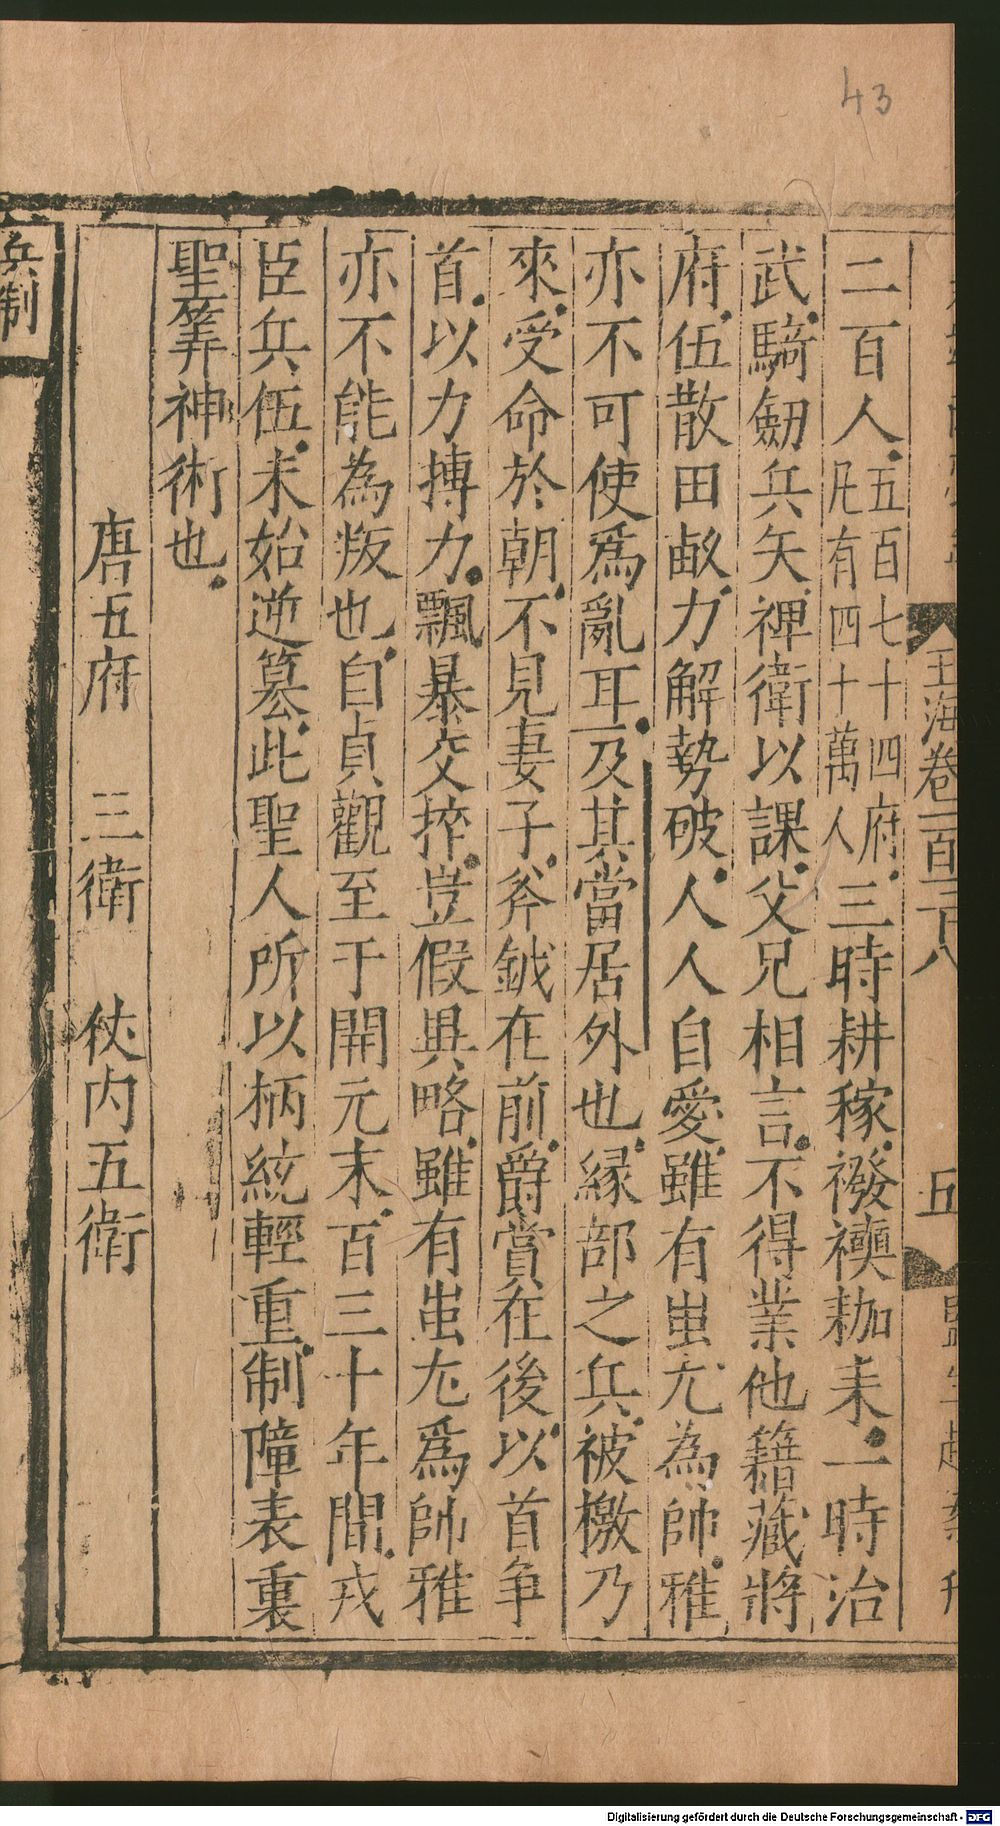 43
玉海卷一百三十八
二百人五百七十四府凡有四十萬人三時耕稼襏襫耞耒一時治
武騎劒兵矢裨衛以課父兄相言不得業他籍藏將
府伍散田畝力解勢破人人自愛雖有蚩尤為帥雅
亦不可使爲亂耳及其當居外也縁部之兵被檄乃
來受命於朝不見妻子斧鉞在前爵賞在後以首争
首以力搏力飄暴交捽豈假異略雖有蚩尤爲帥雅
亦不能為叛也自貞觀至于開元末百三十年間戎
臣兵伍未始逆篡此聖人所以柄綂輕重制障表裏
聖筭神術也
唐五府 三衛 仗内五衛
兵制
Digitalisierung gefördert durch die Deutsche Forschungsgemeinschaft - DFG